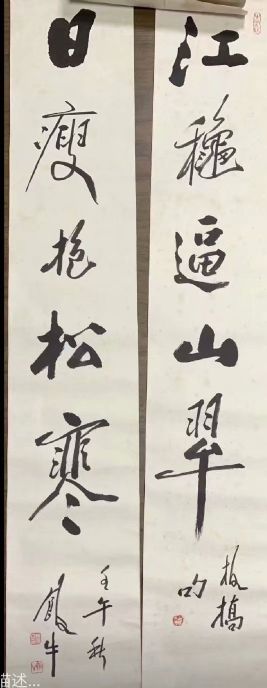 江穐逼山翠
板橋句
日瘦抱松寒
壬午秋
飯牛
描述...